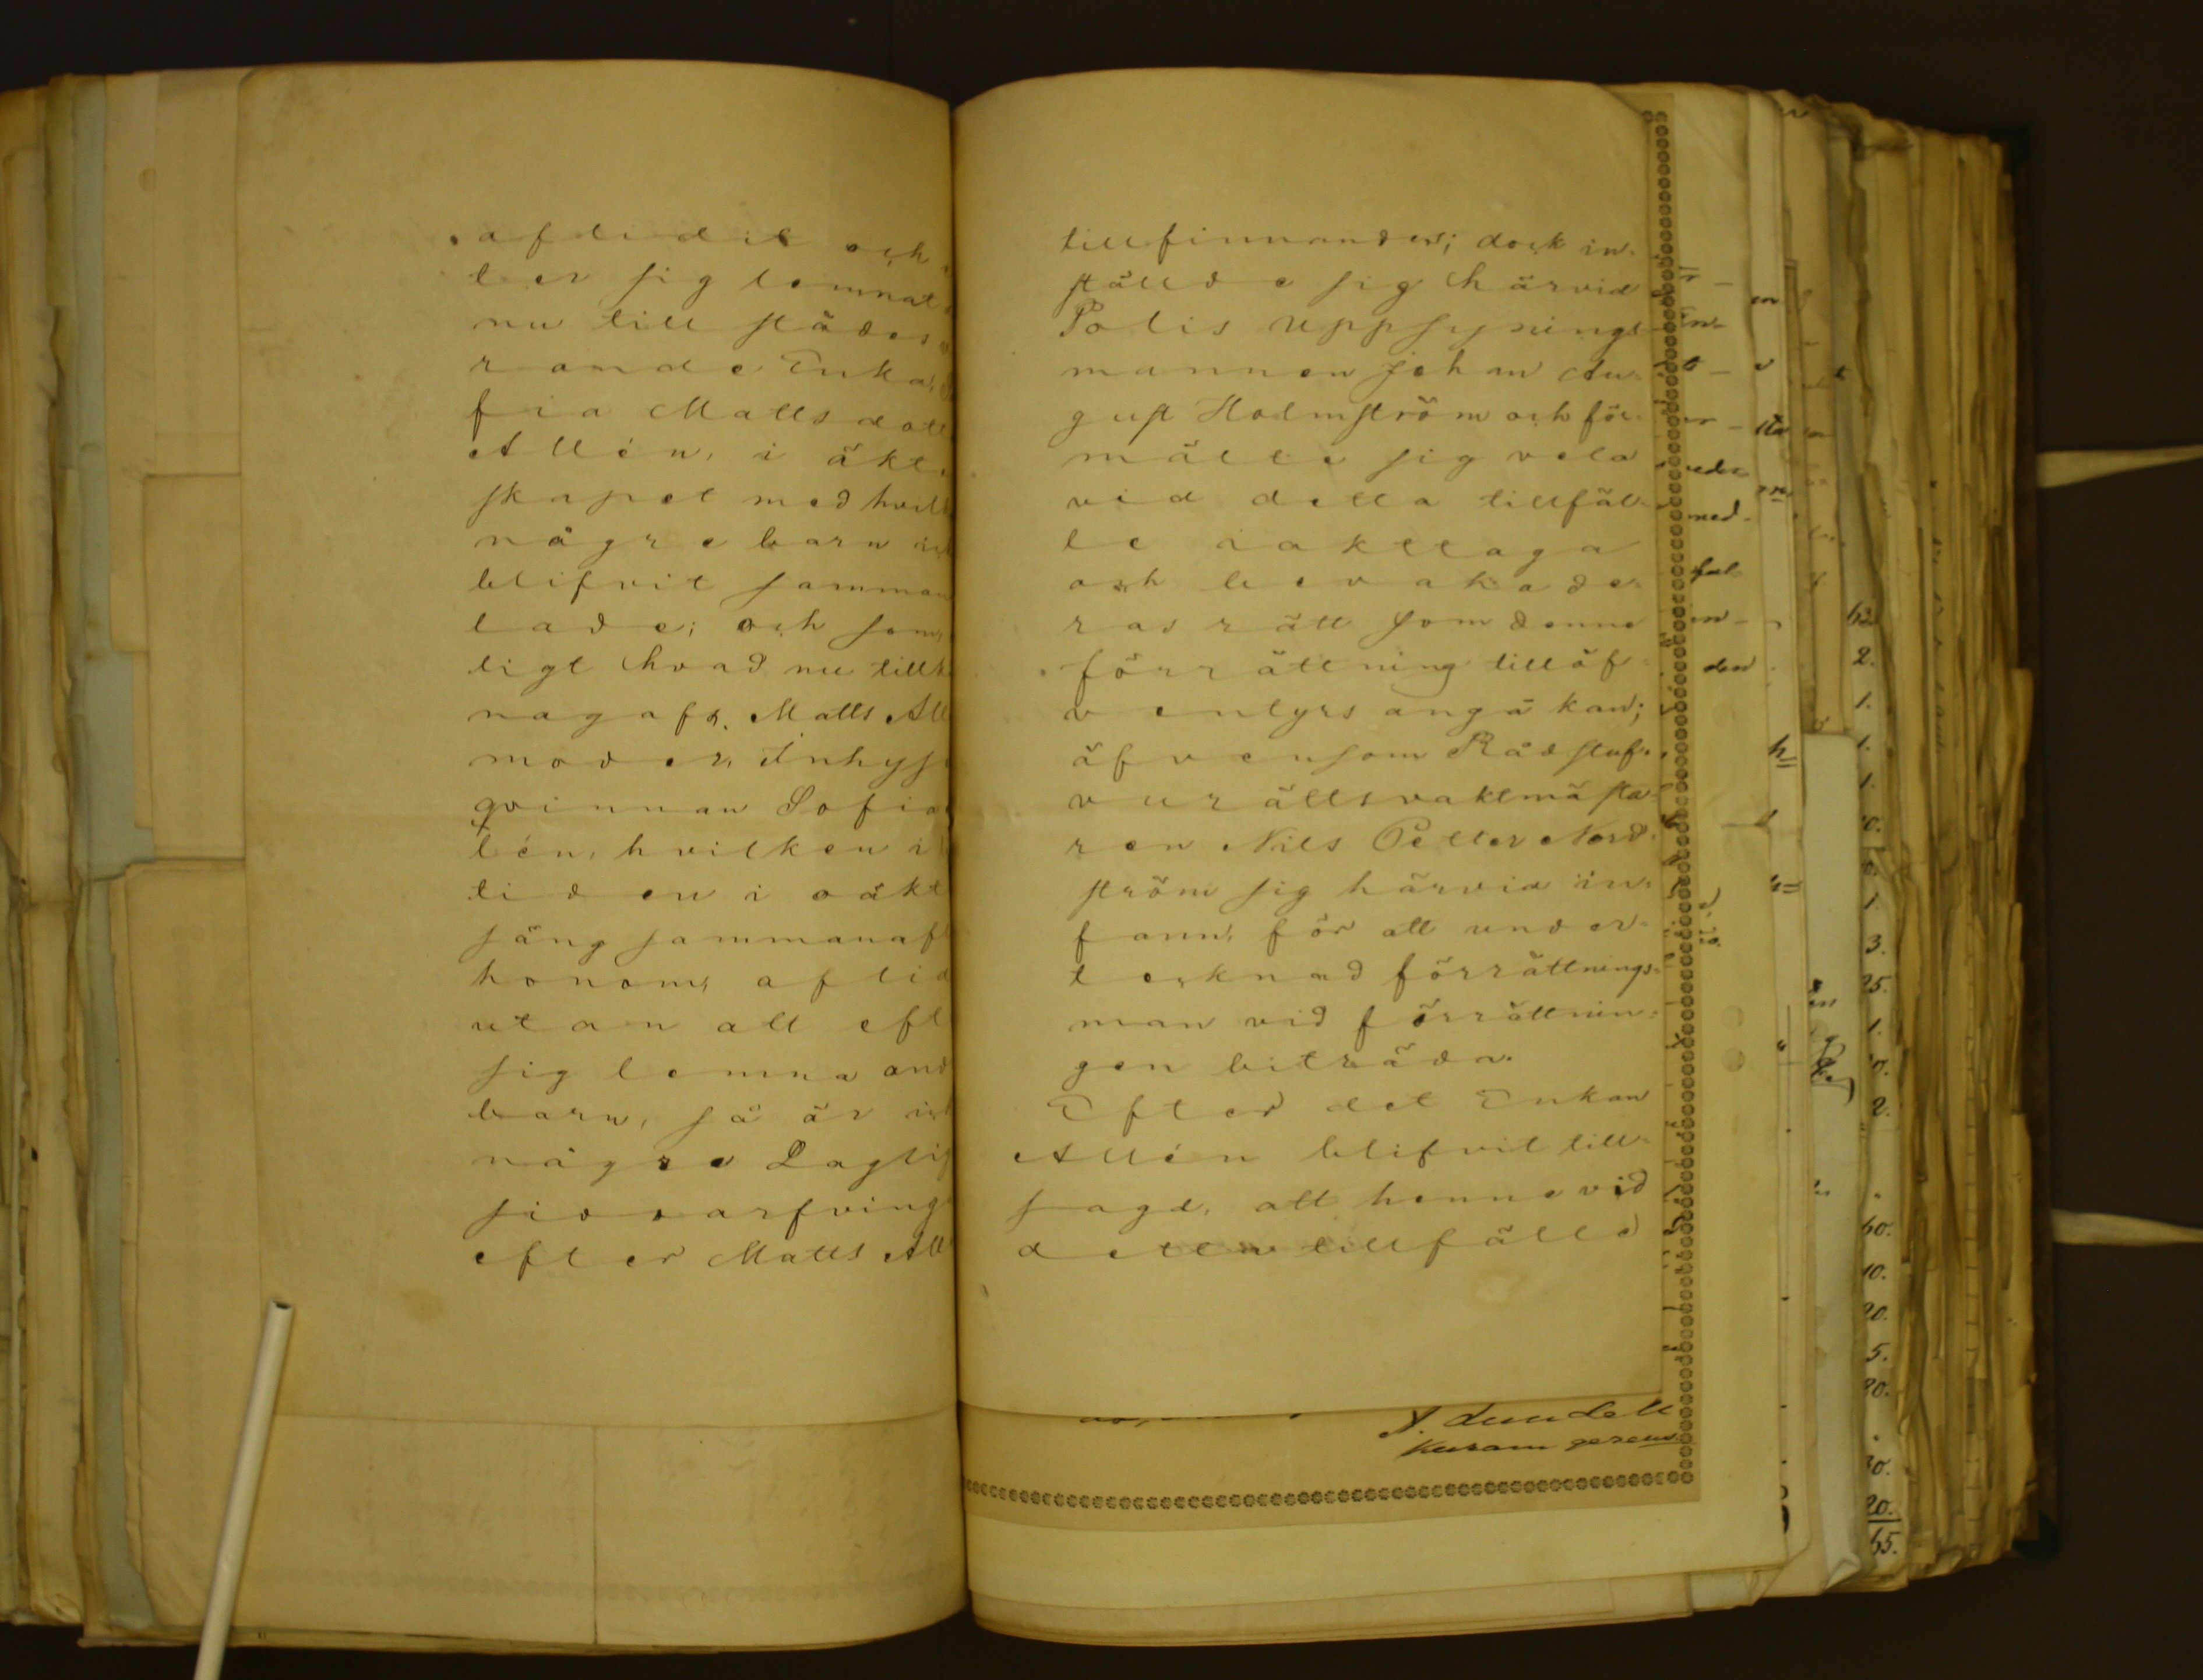 aflidit och
ter sig lemnat
nu till städes
rande Enka,
fia Matts dott
Allén, i äkt
skapet med hvil
några barn ick
blifvit samman
lade; och som,
ligt hvad nu till
nagafs, Matts All
moder, Inhyse
qvinnan Sofia
lén, hvilken i
tiden i oäkt
säng sammanafl
honom, aflid
utan att eft
sig lemna and
barn, så är ick
några Laglig
sidoarfving
efter Matts All
tillfinnandes; dock in-
stälde sig härvid
Polis Uppsynings
mannen Johan Au-
gust Holmström och för-
mälte sig vela
vid detta tillfäl-
le iakttaga
och bevaka de-
ras rätt som denne
förrättning tilläf-
ventyrs angå kan;
äfvensom Rådstuf-
vurättsvaktmästa-
ren Nils Petter Nord-
ström sig härvid in-
fann, för att under-
tecknad förrättnings-
man vid förrättnin-
gen biträda.
Efter det Enkan
Allén blifvit till-
sagd, att henne vid
detta tillfälle
A. Lundell